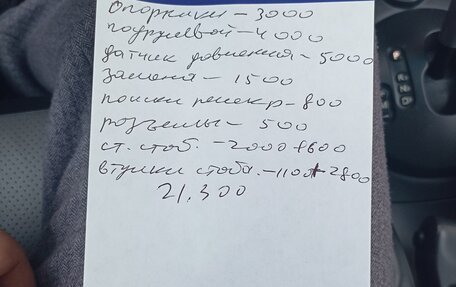 опорники - 3000
подрулевой - 4000
датчик давления - 5000
замена - 1500
поиски - 800
разъемы - 500
ст. стоб. - 2000 + 600
втулки стоба. - 1100 + 2800
21.300